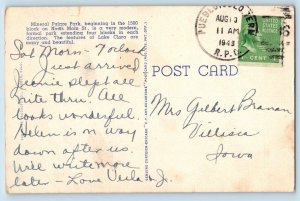 Mineral Palace Park, beginning in the 1500
block on North Main St., is a very modern,
formal park extending four blocks in each
direction. The features of Lake Clara are
many and beautiful.
Sat Morn -
Just arrived
Jeanie slept all
nite thru. All
looks wonderful.
Helen is on way
down after us.
Will write more
later - Love
POST CARD
AUG 13
11 AM
1943
R.P.O.
UNITED STATES
1 CENT
Mrs Gilbert Branan
Villisca
Iowa